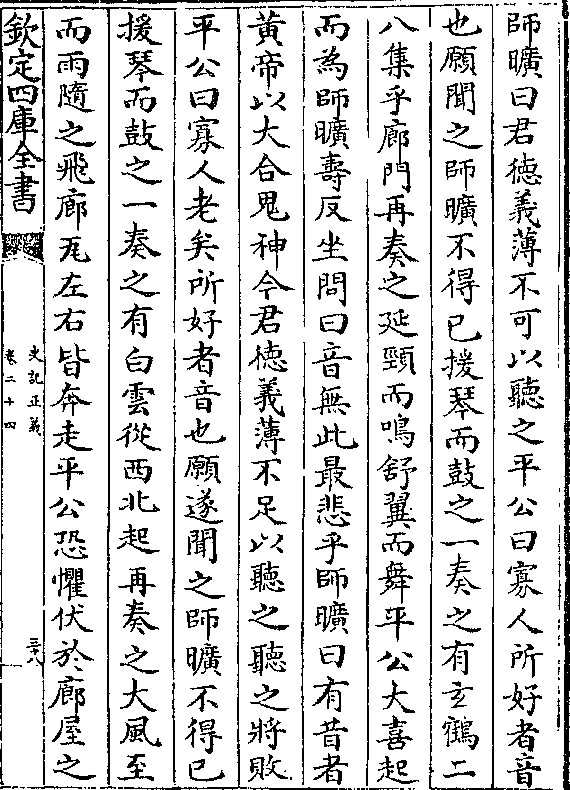 師曠曰君徳義薄不可以聽之平公曰寡人所好者音
也願聞之師曠不得已援琴而鼓之一奏之有玄鶴二
八集乎廊門再奏之延頸而鳴舒翼而舞平公大喜起
而為師曠壽反坐問曰音無此最悲乎師曠曰有昔者
黄帝以大合鬼神今君徳義薄不足以聽之聽之將敗
平公曰寡人老矣所好者音也願遂聞之師曠不得已
援琴而鼓之一奏之有白雲從西北起再奏之大風至
而雨隨之飛廊瓦左右皆奔走平公恐懼伏於廊屋之
欽定四庫全書
史記正義
卷二十四
三十八